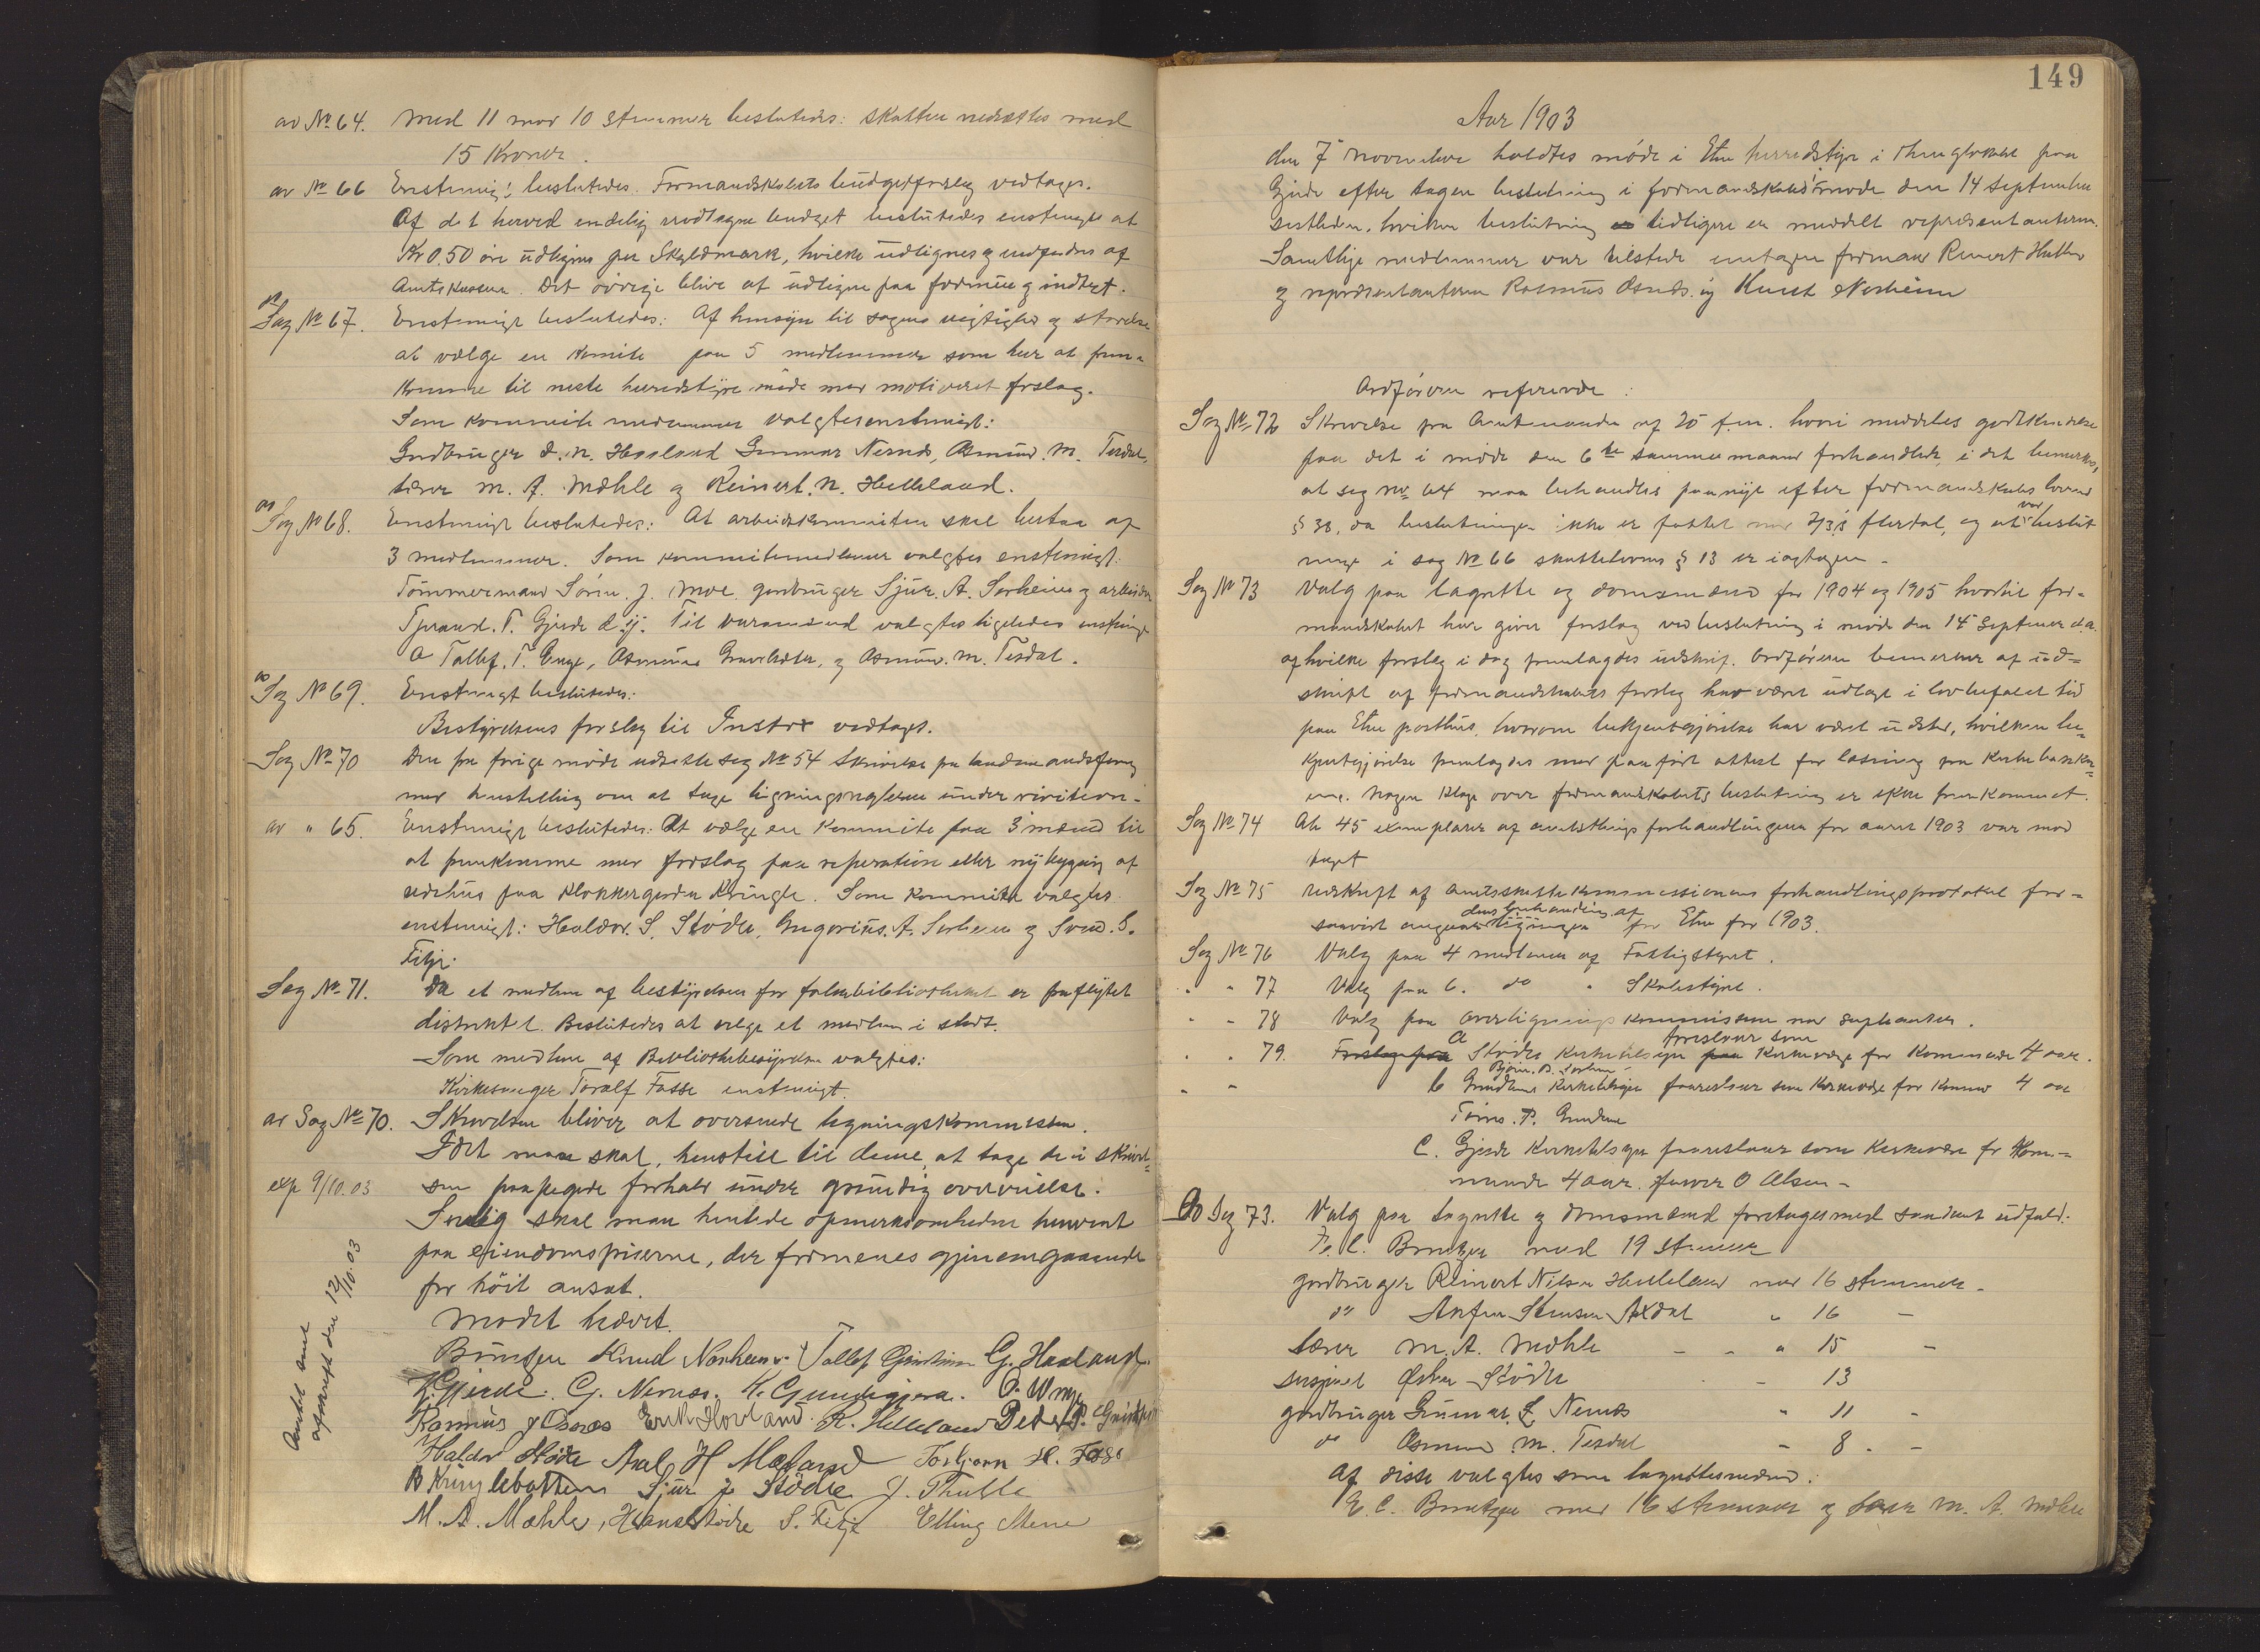 ad № 64. Med 11 mod 10 stemmer beslutedes: skatten nedsættes med
15 Kroner.
av № 66 Enstemig! beslutedes. Formandskabets budgetforslag vedtages.
Af det herved endelig vedtagne budget beslutedes enstemigt at
Kr 0.50 øre udlignes per Skyldmark, hvilke udlignes og indfordres af
Amtskassen. Det øvrige blive at udligne paa formue og indtægt.
ad Sag № 67. Enstemigt beslutedes: Af hensyn til sagens vigtighed og størrelse
at vælge en Komite paa 5 medlemmer som har at frem-
komme til neste herredstyre møde med motiveret forslag.
Som Kommite medlemmer valgtes enstemigt:
Gardbruger O. N. Haaland Gunnar Nernæs, Asmund. M. Tesdal,
lærer M. A. Mæhle og Reinert. N. Helleland.
ad Sag № 68. Enstemigt beslutedes: At arbeidskommiteen skal bestaa af
3 medlemmer. Som Kommitemedlemmer valgtes enstemigt:
Tømmermand Søren. J. Moe. gardbruger Sjur. A. Sørheim og arbeider
Tjerand. T. Gjerde d.y. Til varamænd valgtes ligeledes enstemigt
Tollef. T. Enge, Asmund Grindheim, og Asmund. M. Tesdal.
ad Sag № 69. Enstemigt beslutedes:
Bestyrelsens forslag til Instrx vedtages.
Sag № 70 Den fra forige møde udsatte sag № 54 skrivelse fra landmandsforening
med henstilling om at tage ligningsreglerne under revition.
av " 65. Enstemigt beslutedes: At vælge en Kommite paa 3 mænd til
at fremkomme med forslag paa reperation eller nybygging af
udehus paa Klokkergarden Kringle. Som Kommite valgtes
enstemigt: Haldor. S. Stødle, Gregorius. A. Sørheim og Svend. S.
Fitje.
Sag № 71. Da et medlem af bestyrelsen for folkebibliotheket er fraflyttet
distriktet. Beslutedes at velge et medlem i stedt.
Som medlem af Bibliotheksbestyrelsen valgtes:
Kirkesanger Toralf Fosse enstemigt.
av Sag № 70. Skrivelsen bliver at oversende ligningskommissionen.
Idet man skal, henstill til denne, at tage de i skrivel-
exp 9/10.03 sen paapegede forhold under grundig overveielse.
Særlig skal man henlede opmerksomheden henvendt
paa eiendomspriserne, der formenes gjenemgaaende
for høit ansat.
Mødet hævet.
Bruntzen Knud Norheim Tollef Grindheim G. Haaland.
K. Gjerde. G. Nernæs. K. Grindheim. O. Vinje
Rasmus J Osnæs Erik Hovland R. Helleland Peder P. Grindheim
Haldor Støle Axel H Mæland Torbjørn H. Fosse
B Kringlebotten Sjur J Støle J. Phulle
M. A. Mæhle, Hans Støle S. Fitje Elling Stene
Anket sendt
afskrift den 12/10.03
149
Aar 1903
den 7 november holdtes møde i Etne herredstyre i thinglokalet paa
Gjerde efter tagen beslutning i formandskabsmøde den 14 september
sestleden, hvilken beslutning tidligere er meddelt repræsentanterne.
Samtlige medlemmer var tilstede undtagen formand Reinert Hetle
og repræsentanterne Rasmus Osnæs. og Knut Norheim
Ordføreren refererede:
Sag № 72 Skrivelse fra Amtmanden af 20 f.m. hvori meddeles godkendelse
paa det i møde den 6te samme maaned forhandlede, i det bemerkes,
at sag № 64 maa behandles paanyt efter formandskabs loven
§ 38, da beslutningen ikke er fattet med 2/3's flertal, og at ved beslut
ninge i sag № 66 skatteloven § 13 er iagtagen.
Sag № 73 Valg paa lagrette og domsmænd for 1904 og 1905 hvortil for-
mandskabet har given forslag ved beslutning i møde den 14 September d.a.
af hvilke forslag i dag fremlagdes udskrift. Ordføreren bemerker af ud-
skrift af formandskabets forslag har været udlagt i lovbefalet tid
paa Etne posthus, hvorom bekjentgjørelse har været udstedt, hvilken be-
Kjentgjørelse fremlagdes med paaført attest for læsning paa Kirkebakker-
ene. Nogen Klage over formandskabets beslutning er ikke fremkommet.
Sag № 74 At 45 exemplarer af amtsthings forhandlingerne for aaret 1903 var mod
taget
Sag № 75 udskrift af amtsskattekommissionens forhandlingsprotokol for-
saavidt angaar dens behandling af ligningen for Etne for 1903.
Sag № 76 Valg paa 4 medlemmer af Fattigstyret.
" " 77 Valg paa 6. do " Skolestyret.
" " 78 Valg paa overligningskommissionen med suplianter.
" " 79. Forslag paa A Støles Kirketilsyn foreslaar som Kirkeværge for Kommende 4 aar.
Bjørn. B. Sørheim
" " b Grindheims Kirketilsyn foreslaar som Kirkeværge for Kommende 4 aar
Tørres. P. Grindheim
C. Gjerde Kirketilsyn foreslaar som Kirkeværge for Kom-
mende 4 aar. O Olsen
Ad Sag 73. Valg paa lagrette og domsmænd foretages med saadant udfald:
E. C. Bruntzen med 19 stemmer
gardbruger Reinert Nilsen Helleland med 16 stemmer
do Anfin Stensen Axdal " 16 —
lærer M. A. Mæhle — " " 15 —
sersjant Østen Støle — 13
gardbruger Gunnar. L. Nernæs " 11 -
do Asmund M. Tesdal - 8. -
Af disse valgtes som lagrettesmænd:
E. C. Bruntzen med 16 stemmer og lærer M. A. Mæhle